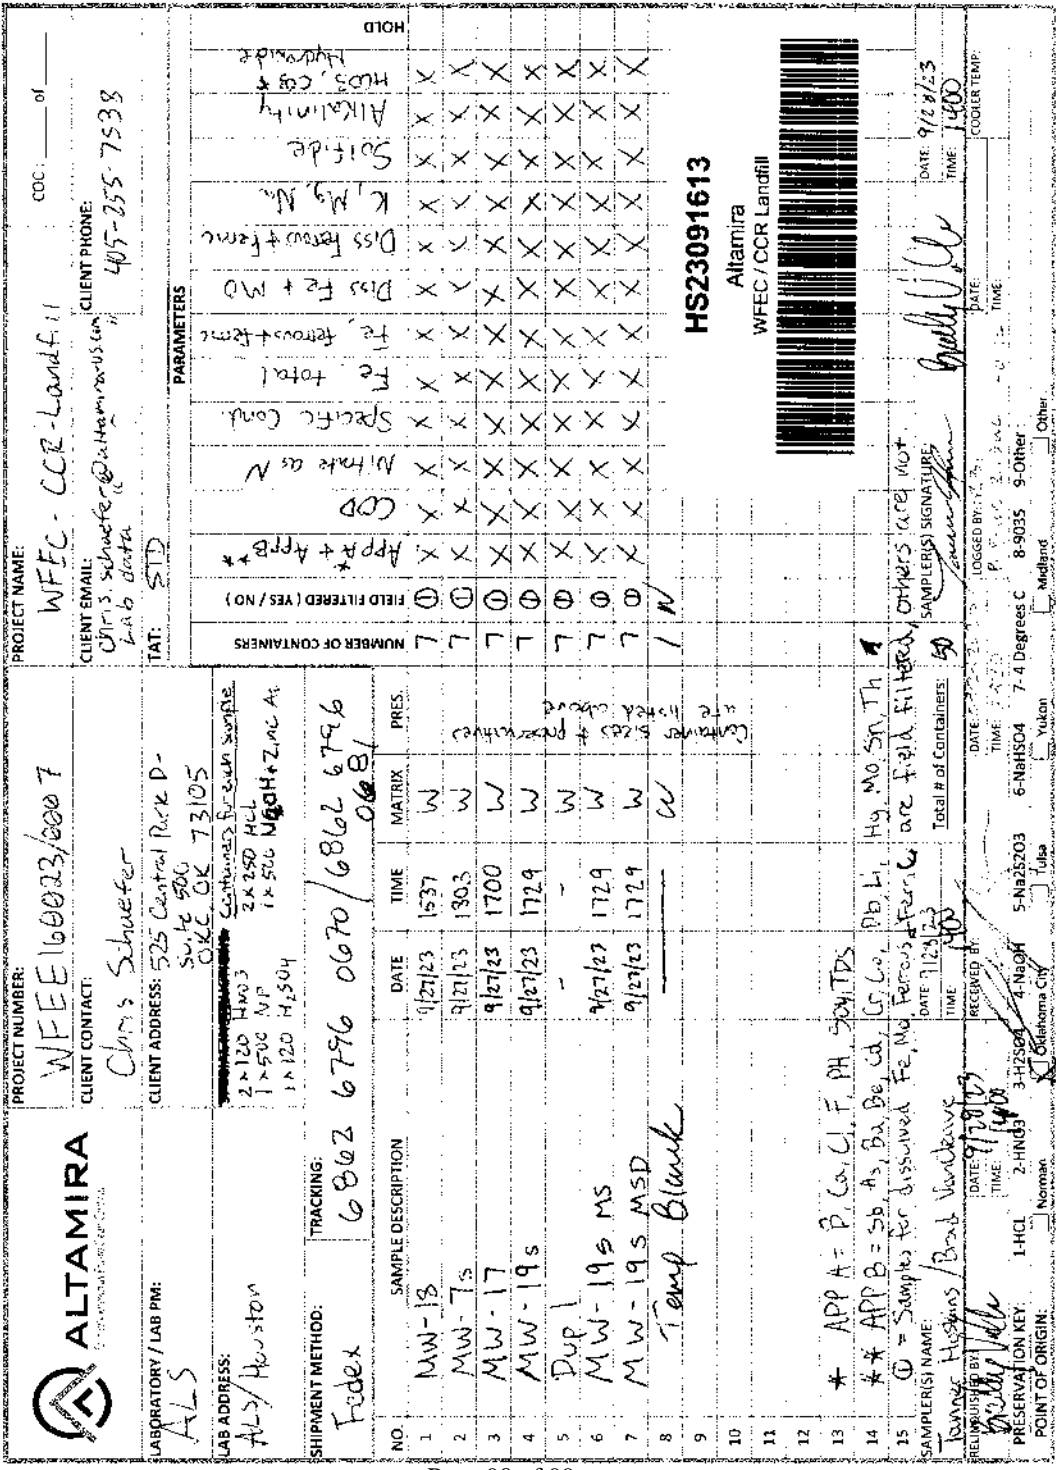 ALTAMIRA
PROJECT NUMBER: WFEE160023/0007
PROJECT NAME: WFEC - CCR - Landfill
COC: ____ of ____
LABORATORY / LAB PM: ALS
CLIENT CONTACT: Chris Schaefer
CLIENT EMAIL: Chris.schaefer@altamiraus.com
Lab data " "
CLIENT PHONE: 405-255-7538
CLIENT ADDRESS: 525 Central Park D-
Suite 500
OKC, OK 73105
TAT: STD
LAB ADDRESS: ALS/Houston
Containers for each sample
2 x 120 HNO3 2 x 250 HCL
1 x 500 NP 1 x 500 NaOH + Zinc Ac
1 x 120 H2SO4
SHIPMENT METHOD: Fedex
TRACKING: 6862 6796 0670 / 6862 6796 0681
PARAMETERS
NO. SAMPLE DESCRIPTION DATE TIME MATRIX PRES. NUMBER OF CONTAINERS FIELD FILTERED ( YES / NO ) App A + App B * ** COD Nitrate as N Specific Cond. Fe total Fe, ferrous + ferric Diss Fe + MO Diss ferrous + ferric K, Mg, Na Sulfide Alkalinity HCO3, CO3 + Hydroxide HOLD
1 MW-18 9/27/23 1537 W 7 ① X X X X X X X X X X X X
2 MW-7s 9/27/23 1303 W 7 ① X X X X X X X X X X X X
3 MW-17 9/27/23 1700 W 7 ① X X X X X X X X X X X X
4 MW-19s 9/27/23 1729 W 7 ① X X X X X X X X X X X X
5 Dup 1 - - W 7 ① X X X X X X X X X X X X
6 MW-19s MS 9/27/23 1729 W 7 ① X X X X X X X X X X X X
7 MW-19s MSD 9/27/23 1729 W 7 ① X X X X X X X X X X X X
8 Temp Blank W 1 N
Container sizes + preservatives
are listed above
9
10
11
12
HS23091613
Altamira
WFEC / CCR Landfill
13 * APP A = B, Ca, Cl, F, PH, SO4, TDS
14 ** APP B = Sb, As, Ba, Be, Cd, Cr, Co, Pb, Li, Hg, Mo, Sn, Th
15 ① = Samples for dissolved Fe, Mo, Ferrous + Ferric are field filtered, others are not.
SAMPLER(S) NAME: Tanner Huggins / Brad Vancleave
DATE: 9/28/23
TIME 1400
Total # of Containers: 50
SAMPLER(S) SIGNATURE:
DATE: 9/28/23
TIME: 1400
RELINQUISHED BY:
DATE: 9/28/23
TIME: 1400
RECEIVED BY:
DATE:
TIME:
LOGGED BY:
DATE:
TIME:
COOLER TEMP:
PRESERVATION KEY 1-HCL 2-HNO3 3-H2SO4 4-NaOH 5-Na2S2O3 6-NaHSO4 7- 4 Degrees C 8-9035 9-Other
POINT OF ORIGIN: Norman Oklahoma City Tulsa Yukon Midland Other